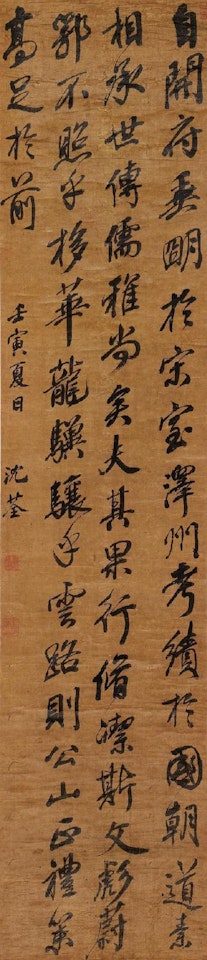 自開府垂明於宋室澤州考績於國朝道素
相承世傳儒雅尚矣夫其果行脩潔斯文彪蔚
鄂不照乎棣華龍驥驤乎雲路則公山正禮策
高足於前
壬寅夏日
沈荃